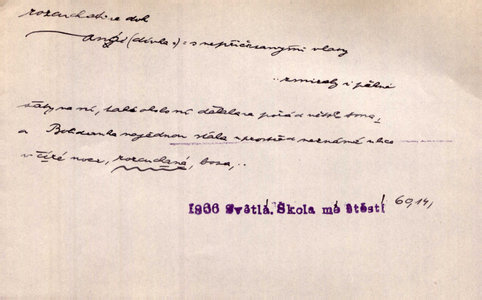 rozcuchati se dok
(dívka:) s nepřičísanými vlasy
.. zmizely i pěkné
šaty na ní, také okolo ní dělala se pořád větší tma,
a Bohdanka najednou stála uprostřed neznámé ulice
v čiré noci, rozcuchaná, bosa, ..
1966 Světlá. Škola mé štěstí 60,14,